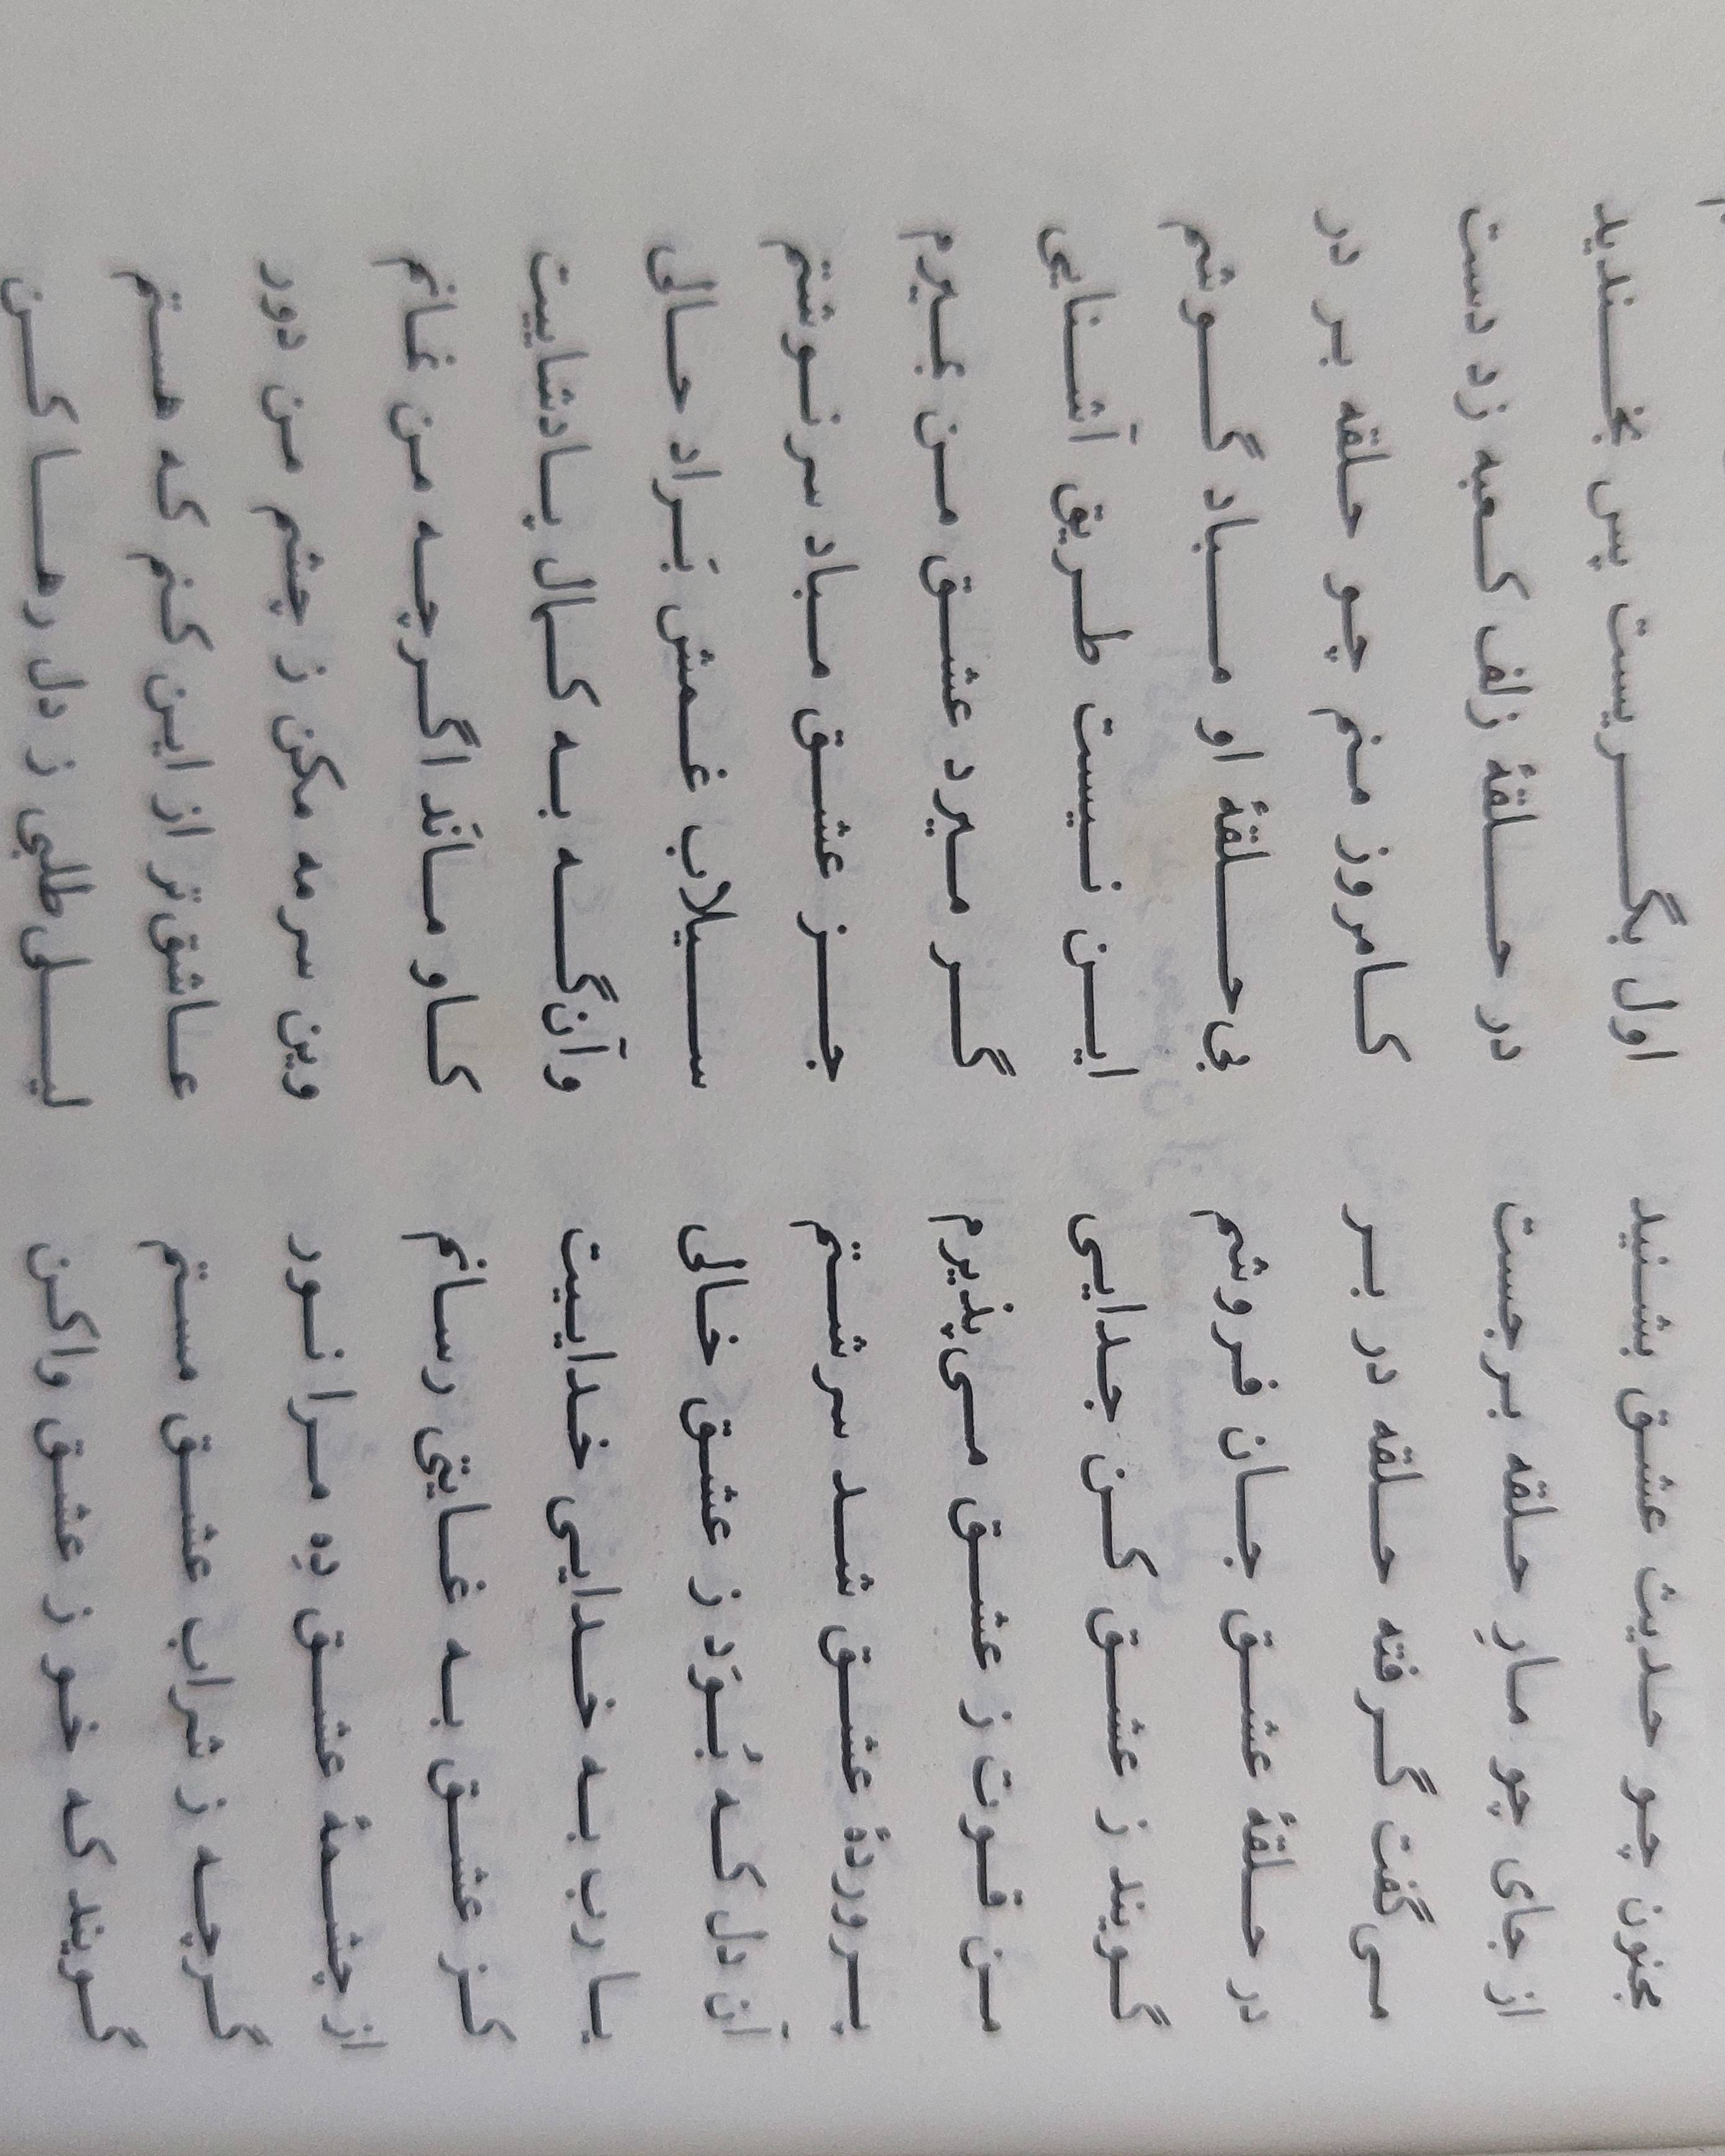 مجنون چو حدیث عشق بشنید    اول بگریست پس بخندید
از جای چو مارِ حلقه برجست    در حلقهٔ زلف کعبه زد دست
می‌گفت گرفته حلقه در بر    کامروز منم چو حلقه بر در
در حلقهٔ عشق جان فروشم    بی‌حلقهٔ او مباد گوشم
گویند ز عشق کن جدایی    این نیست طریق آشنایی
من قوت ز عشق می‌پذیرم    گر میرد عشق من بمیرم
پروردهٔ عشق شد سرشتم    جز عشق مباد سرنوشتم
آن دل که بُوَد ز عشق خالی    سیلاب غمش بَراد حالی
یا رب به خدایی خداییت    وآن‌گه به کمال پادشاییت
کز عشق به غایتی رسانم    کاو مانَد اگرچه من نمانم
از چشمهٔ عشق دِه مرا نور    وین سرمه مکن ز چشم من دور
گرچه ز شراب عشق مستم    عاشق‌تر از این کنم که هستم
گویند که خو ز عشق واکن    لیلی‌طلبی ز دل رها کن